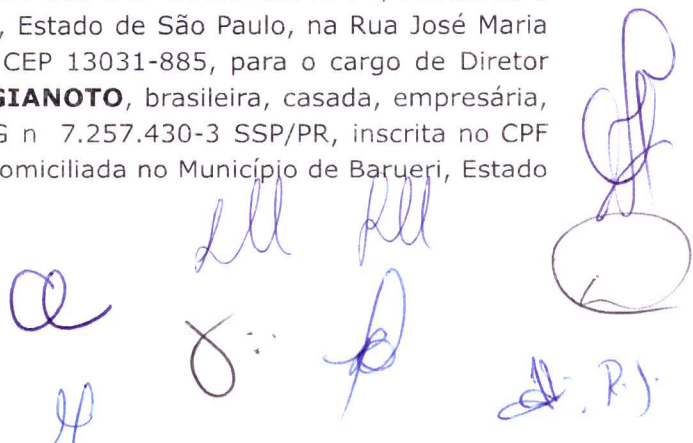 , Estado de São Paulo, na Rua José Maria
CEP 13031-885, para o cargo de Diretor
GIANOTO, brasileira, casada, empresária,
G n 7.257.430-3 SSP/PR, inscrita no CPF
omiciliada no Município de Barueri, Estado
R.J.